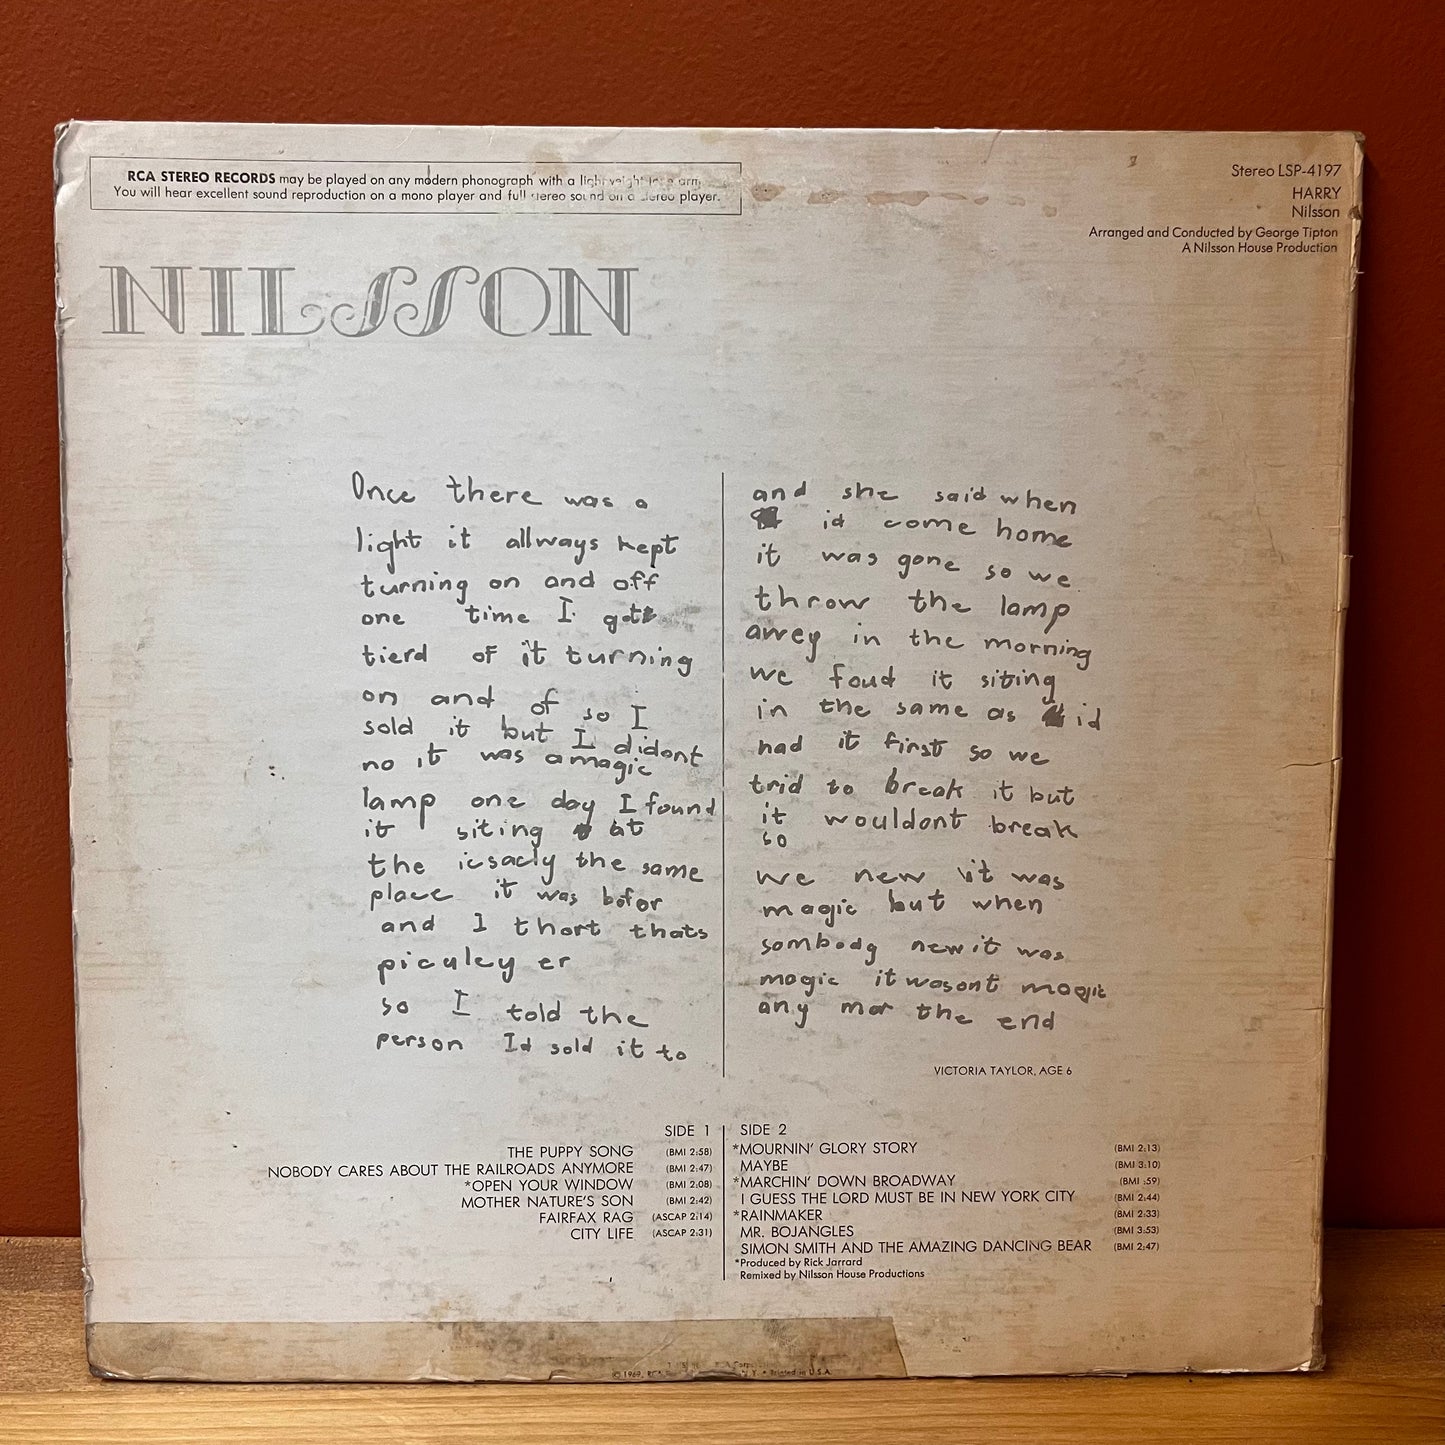 RCA STEREO RECORDS may be played on any modern phonograph with a lightweight tone arm.
You will hear excellent sound reproduction on a mono player and full stereo sound on a stereo player.
Stereo LSP-4197
HARRY
Nilsson
Arranged and Conducted by George Tipton
A Nilsson House Production
NILSSON
Once there was a
light it allways kept
turning on and off
one time I got
tierd of it turning
on and of so I
sold it but I didont
no it was a magic
lamp one day I found
it siting at
the icsacly the same
place it was bofor
and I thort thats
piculey er
so I told the
person Id sold it to
and she said when
id come home
it was gone so we
throw the lamp
awey in the morning
we foud it siting
in the same as id
had it first so we
trid to break it but
it wouldont break
so
we new it was
magic but when
sombody new it was
magic it wasont magic
any mor the end
VICTORIA TAYLOR, AGE 6
SIDE 1
THE PUPPY SONG (BMI 2:58)
NOBODY CARES ABOUT THE RAILROADS ANYMORE (BMI 2:47)
*OPEN YOUR WINDOW (BMI 2:08)
MOTHER NATURE'S SON (BMI 2:42)
FAIRFAX RAG (ASCAP 2:14)
CITY LIFE (ASCAP 2:31)
SIDE 2
*MOURNIN' GLORY STORY (BMI 2:13)
MAYBE (BMI 3:10)
*MARCHIN' DOWN BROADWAY (BMI :59)
I GUESS THE LORD MUST BE IN NEW YORK CITY (BMI 2:44)
*RAINMAKER (BMI 2:33)
MR. BOJANGLES (BMI 3:53)
SIMON SMITH AND THE AMAZING DANCING BEAR (BMI 2:47)
*Produced by Rick Jarrard
Remixed by Nilsson House Productions
© 1969, RCA N.Y. • Printed in U.S.A.